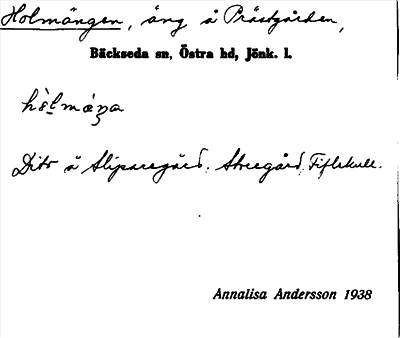 Holmängen, äng å Prästgården,
Bäckseda sn, Östra hd, Jönk. l.
Dito å Sliparegård, Skreegård, Fiflekull.
Annalisa Andersson 1938